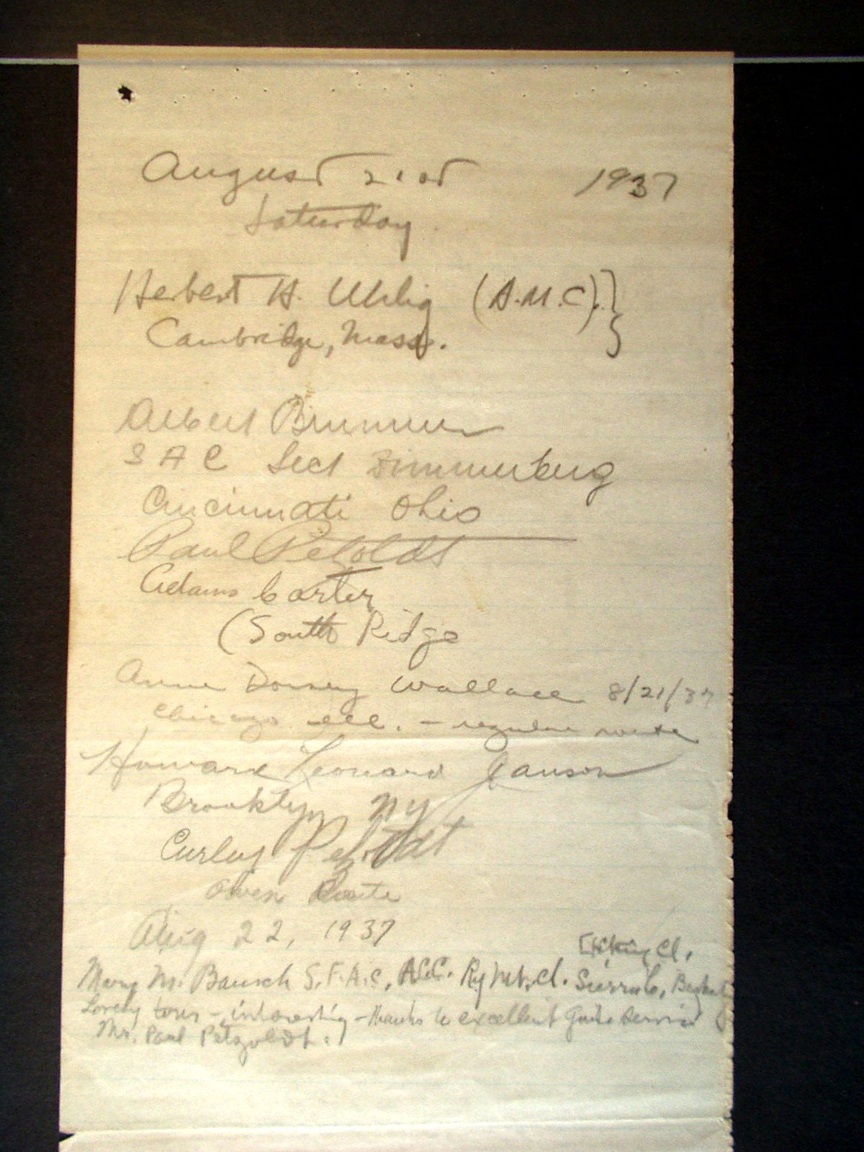 August 21st 1937
Saturday
Herbert H. Uhlig (A.M.C.)
Cambridge, Mass.
Albert Brummer
S A C Sect
Cincinnati Ohio
Paul Petzoldt
Adams Carter
(South Ridge
Anne Dorsey Wallace 8/21/37
Chicago Ill. - regular route
Howard Leonard Janson
Brooklyn NY
Curley Petzoldt
Owen Route
Aug 22, 1937
Hiking Cl.
Mary M. Bausch S.F.A.C, A.C.C. Ry Mt. Cl. Sierra C,
Lovely tour - interesting - thanks to excellent guide service
Mr. Paul Petzoldt.